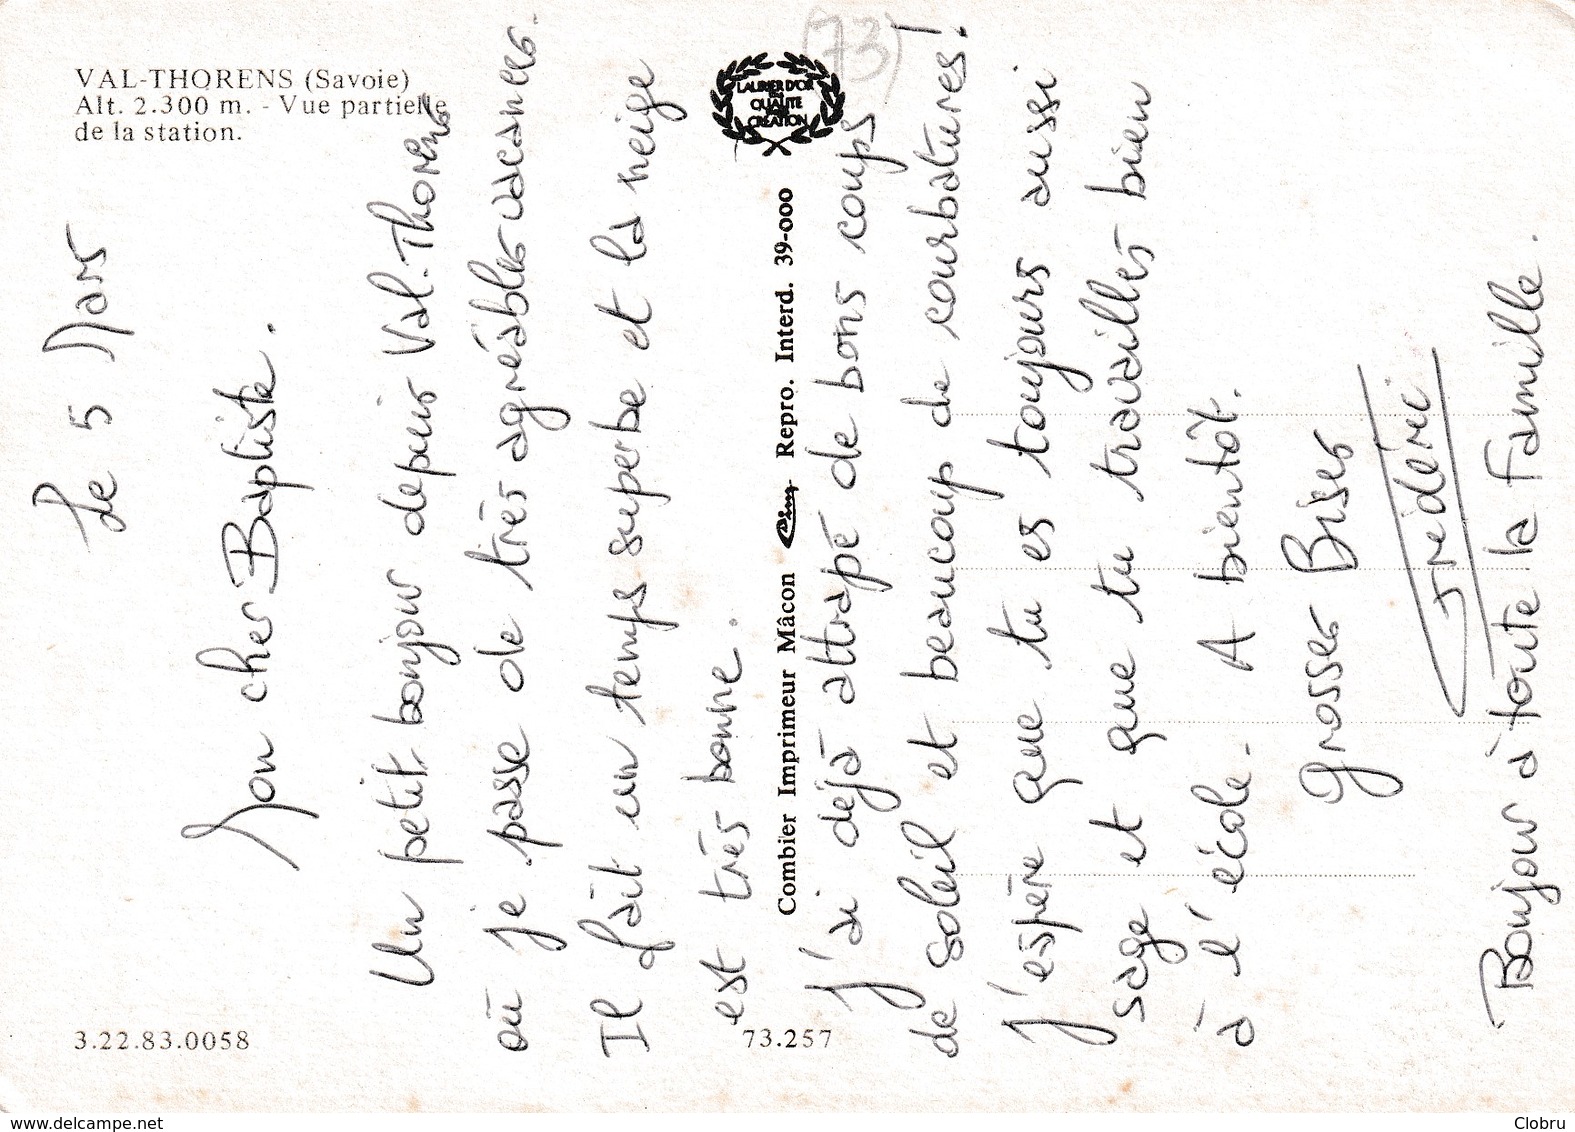 VAL-THORENS (Savoie)
Alt. 2.300 m. - Vue partielle
de la station.
3.22.83.0058
73.257
(73)
LAURIER D'OR
QUALITE
CREATION
Combier Imprimeur Mâcon Cim Repro. Interd. 39-000
Le 5 Mars
Mon cher Baptiste.
Un petit bonjour depuis Val.Thorens
où je passe de très agréables vacances.
Il fait un temps superbe et la neige
est très bonne.
J'ai déjà attrapé de bons coups
de soleil et beaucoup de courbatures!
J'espère que tu es toujours aussi
sage et que tu travailles bien
à l'école. A bientôt.
Grosses Bises
Frédéric
Bonjour à toute la Famille.
www.delcampe.net
Clobru